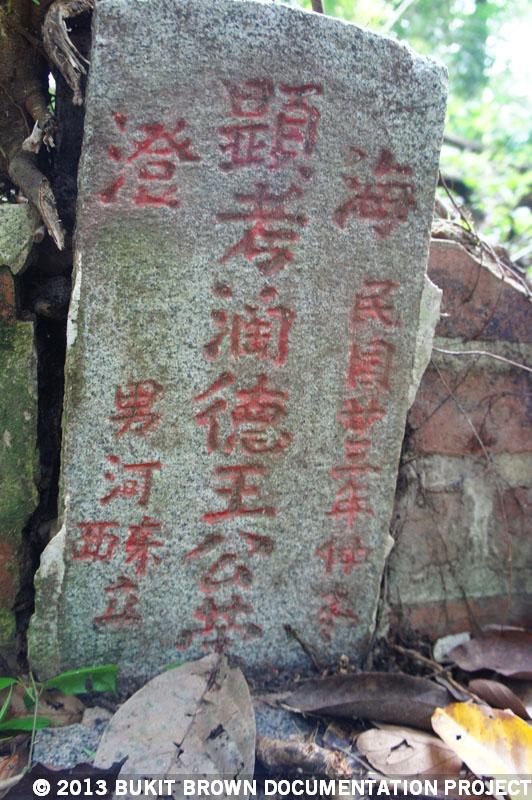 海澄
民國廿三年仲
顯考瀾德王公
男河東西立
© 2013 BUKIT BROWN DOCUMENTATION PROJECT